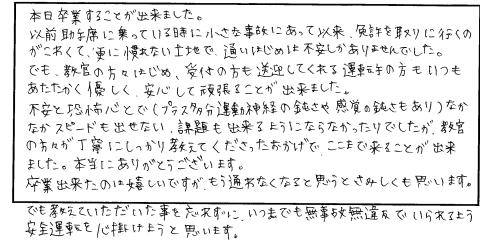 本日卒業することが出来ました。
以前助手席に乗っている時に小さな事故にあって以来、免許を取りに行くの
がこわくて、更に慣れない土地で、通いはじめは不安しかありませんでした。
でも、教官の方々はじめ、受付の方も送迎してくれる運転手の方もいつも
あたたかく優しく、安心して頑張ることが出来ました。
不安と恐怖心とで(プラスタ分運動神経の鈍さや感覚の鈍さもあり)なか
なかスピードも出せない、課題も出来るようにならなかったりでしたが、教官
の方々が丁寧にしっかり教えてくださったおかげで、ここまで来ることが出来
ました。本当にありがとうございます。
卒業出来たのは嬉しいですが、もう通れなくなると思うとさみしくも思います。
でも教えていただいた事を忘れずに、いつまでも無事故無違反でいられるよう
安全運転を心掛けようと思います。